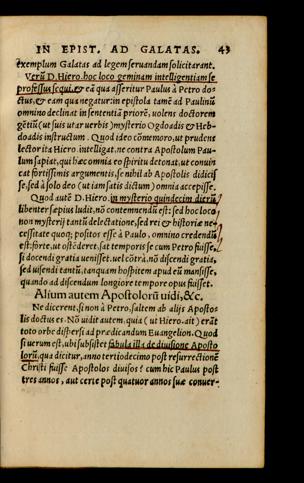 IN EPIST. AD GALATAS. 43
exemplum Galatas ad legem seruandam solicitarant.
Verũ D. Hiero. hoc loco geminam intelligentiam se
professus sequi, & ea qua asseritur Paulus à Petro do-
ctus, & eam qua negatur: in epistola tamẽ ad Paulinũ
omnino declinat in sententiã priorẽ, uolens doctorem
gẽtiũ (ut suis utar verbis) mysterio Ogdoadis & Heb-
doadis instructum. Quod ideo cõmemoro, ut prudens
lector ita Hiero. intelligat, ne contra Apostolum Pau-
lum sapiat, qui hæc omnia eo spiritu detonat, ut conuin
cat fortissimis argumentis, se nihil ab Apostolis didicis
se, sed à solo deo (ut iam satis dictum) omnia accepisse.
Quod autẽ D. Hiero. in mysterio quindecim dierũ
libenter sæpius ludit, nõ contemnendũ est: sed hoc loco
non mysterij tantũ delectatione, sed rei & historiæ ne-
cessitate quoq; positos esse à Paulo, omnino credendũ
est: forte, ut ostẽderet, sat temporis se cum Petro fuisse,
si docendi gratia uenisset. uel cõtrà, nõ discendi gratia,
sed uisendi tantũ, tanquam hospitem apud eũ mansisse,
quando ad discendum longiore tempore opus fuisset.
Alium autem Apostolorũ uidi, &c.
Ne dicerent, si non à Petro, saltem ab alijs Aposto-
lis doctus es. Nõ uidit autem, quia (ut Hiero. ait) erãt
toto orbe dispersi ad prædicandum Euangelion. Quod
si uerum est, ubi subsistet fabula illa de diuisione Aposto
lorũ, qua dicitur, anno tertiodecimo post resurrectionẽ
Christi fuisse Apostolos diuisos? cum hic Paulus post
tres annos, aut certe post quatuor annos suæ conuer-